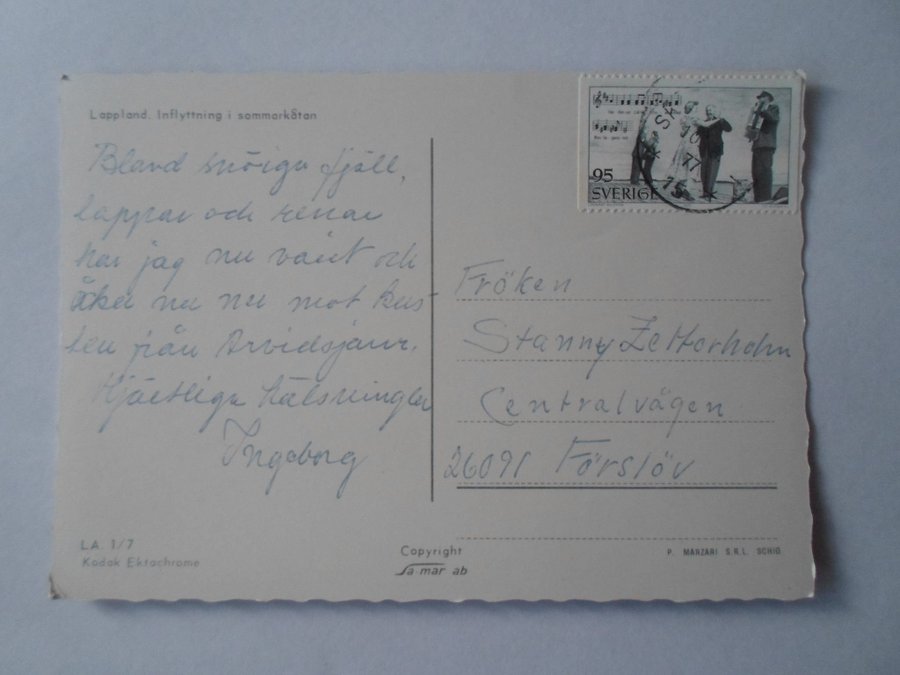 Lappland. Inflyttning i sommarkåtan
Bland snöiga fjäll,
lappar och renar
har jag nu varit och
åker nu nu mot kus-
ten från Arvidsjaur.
Hjärtliga hälsningar
Ingeborg
95
SVERIGE
Fröken
Stanny Zetterholm
Centralvägen
26091 Förslöv
LA. 1/7
Kodak Ektachrome
Copyright
Sa mar ab
P. MANZARI S.R.L. SCHIO